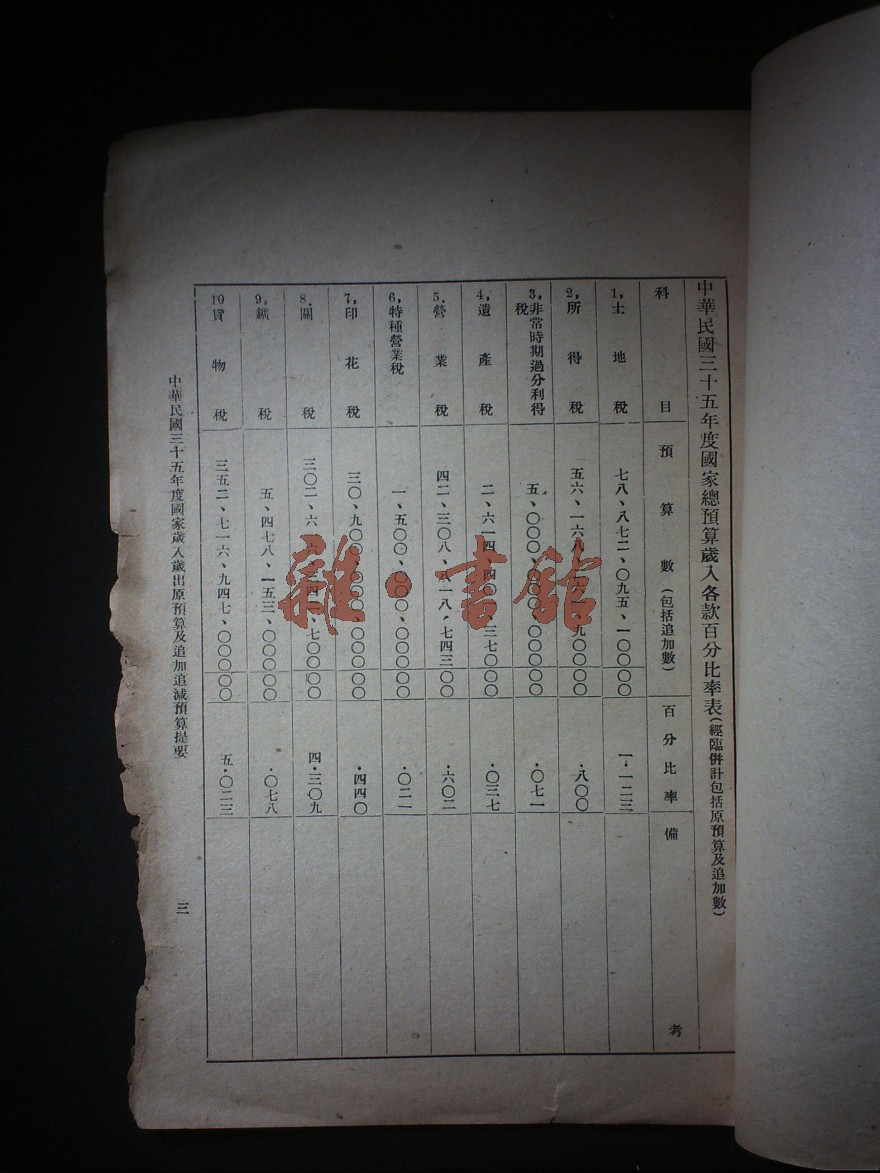 中華民國三十五年度國家總預算歲入各款百分比率表(經臨併計包括原預算及追加數)
科目 預算數(包括追加數) 百分比率 備考
1,土地稅 七八、八七二、〇九五、一〇〇〇〇 一·一二三
2,所得稅 五六、一六 九〇〇〇〇 ·八〇〇
3,非常時期過分利得稅 五、〇〇〇、〇〇〇、〇〇〇〇〇 ·〇七一
4,遺產稅 二、六一四、 三七〇〇〇 ·〇三七
5.營業稅 四二、三〇八、 一八,七四三〇〇 ·六〇二
6,特種營業稅 一、五〇〇、〇〇〇、〇〇〇〇〇 ·〇二一
7,印花稅 三〇、九〇〇、〇〇〇、〇〇〇〇〇 ·四四〇
8.關稅 三〇二、六 七〇〇〇〇 四·三〇九
9,鑛稅 五、四七八、一五三、〇〇〇〇〇 ·〇七八
10貨物稅 三五二、七一六、九四七、〇〇〇〇〇 五·〇二三
中華民國三十五年度國家歲入歲出原預算及追加追減預算提要
三
雜·書館